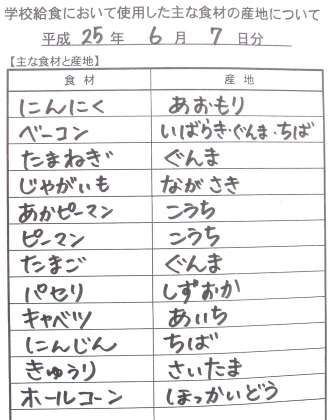 学校給食において使用した主な食材の産地について
平成 25 年 6 月 7 日分
【主な食材と産地】
食材 産地
にんにく あおもり
ベーコン いばらき・ぐんま・ちば
たまねぎ ぐんま
じゃがいも ながさき
あかピーマン こうち
ピーマン こうち
たまご ぐんま
パセリ しずおか
キャベツ あいち
にんじん ちば
きゅうり さいたま
ホールコーン ほっかいどう